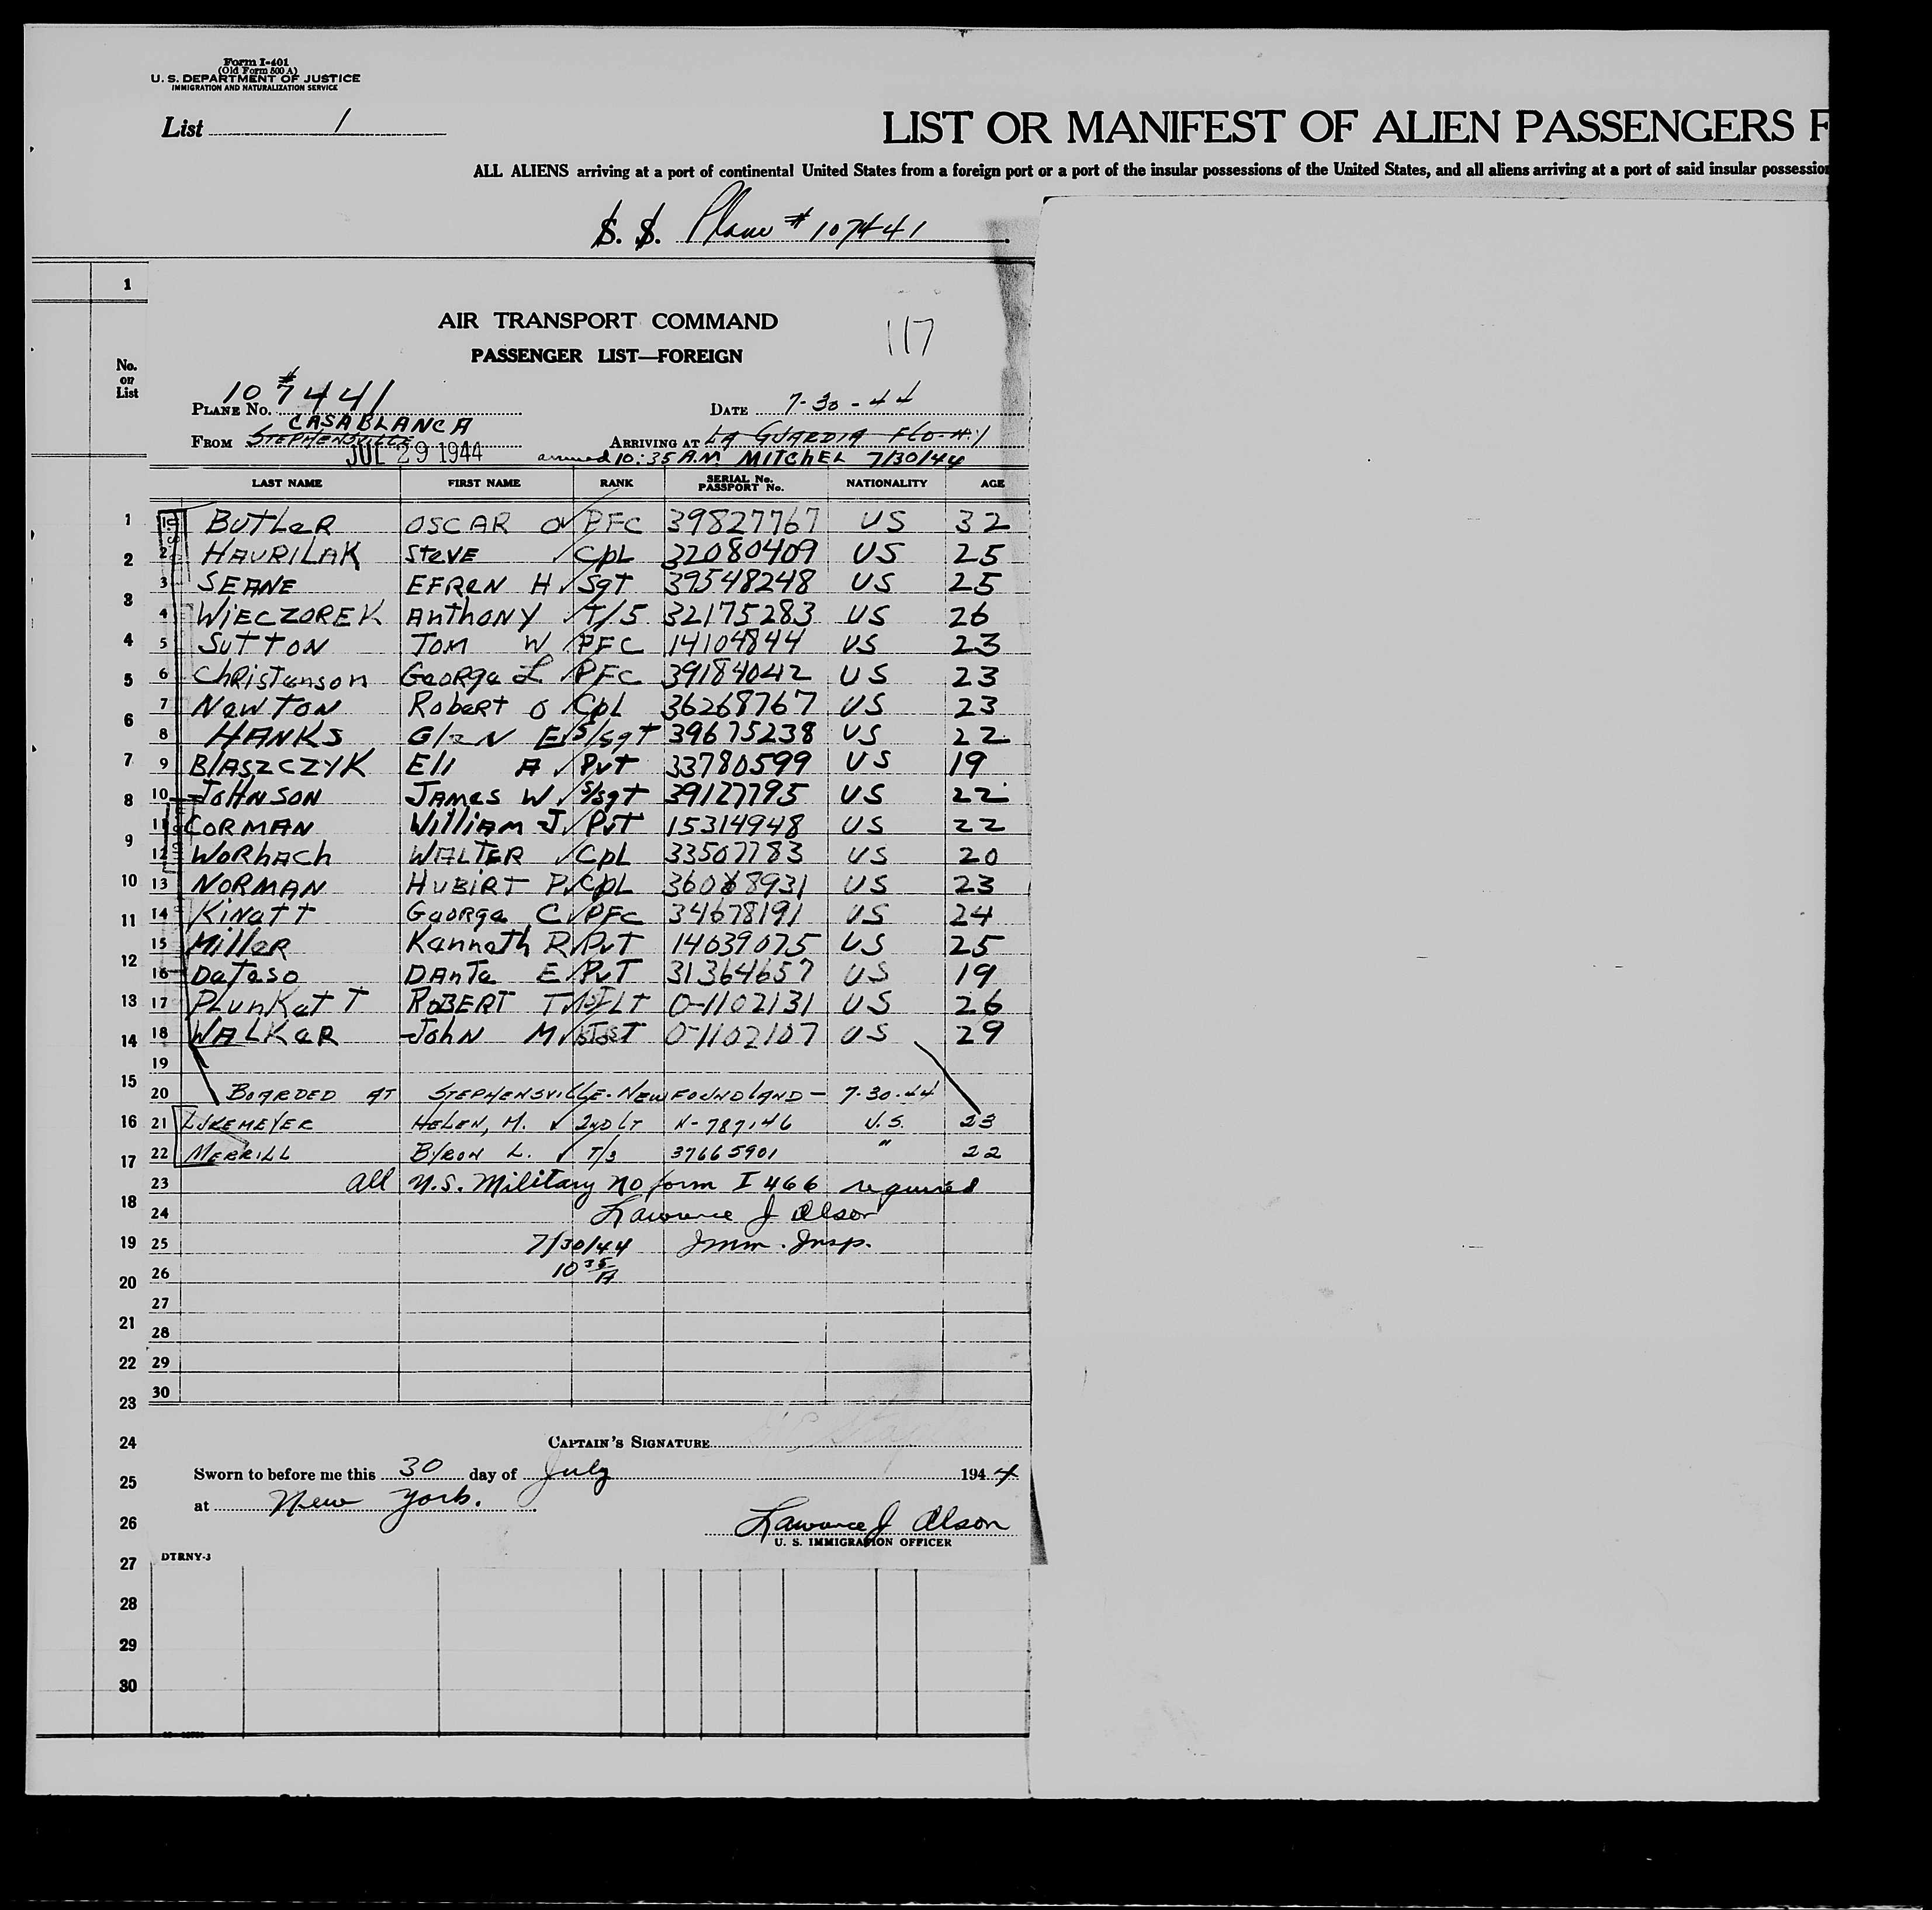 Form I-401
(Old Form 500 A)
U. S. DEPARTMENT OF JUSTICE
IMMIGRATION AND NATURALIZATION SERVICE
List 1
LIST OR MANIFEST OF ALIEN PASSENGERS F
ALL ALIENS arriving at a port of continental United States from a foreign port or a port of the insular possessions of the United States, and all aliens arriving at a port of said insular possession
S. S. Plane # 107441
1
AIR TRANSPORT COMMAND
117
PASSENGER LIST—FOREIGN
No. on List
PLANE No. # 107441 DATE 7-30-44
CASABLANCA
FROM STEPHENSVILLE ARRIVING AT LA GUARDIA
JUL 29 1944 arrived 10:35 A.M. MITCHEL 7/30/44
LAST NAME FIRST NAME RANK SERIAL No. PASSPORT No. NATIONALITY AGE
1 1 BUTLeR OSCAR O PFC 39827767 US 32
2 2 HAVRILAK SteVE CpL 32080409 US 25
3 3 SEANE EFReN H Sgt 39548248 US 25
4 4 WiECZOREK AnthONY T/5 32175283 US 26
5 SUTTON TOM W PFC 14104844 US 23
5 6 ChRisTenson GeoRge L PFC 39184042 US 23
6 7 NewTON RobeRt O CpL 36268767 US 23
8 HANKS GleN E S/sgt 39675238 US 22
7 9 BlASZCZYK Eli A PvT 33780599 US 19
8 10 JOHNSON JAMes W. S/sgt 39127795 US 22
9 11 CORMAN William J. PvT 15314948 US 22
12 WORhACh WALTER CpL 33507783 US 20
10 13 NORMAN HUBiRT P. CpL 36068931 US 23
11 14 KiNett GeoRge C PFC 34678191 US 24
15 MilleR Kenneth R PvT 14039075 US 25
12 16 DeTeso DAnTe E PvT 31364657 US 19
13 17 PLUnKeTT ROBERT T 1ST LT O-1102131 US 26
14 18 WALKeR JohN M O-1102107 US 29
19
15 20 BOARDED AT STEPHENSVILLE-NEWFOUNDLAND - 7-30-44
16 21 LUKEMEYER HELEN, M. 2ND LT N-787146 U.S. 23
17 22 MERRILL BYRON L. T/3 37665901 " 22
23 All U.S. Military no form I 466 required
18 24 Lawrence J Olson
19 25 7/30/44 Imm. Insp.
20 26 10 35 A
27
21 28
22 29
30
23
24 CAPTAIN'S SIGNATURE
25 Sworn to before me this 30 day of July 1944
at New York.
26 Lawrence J Olson
U. S. IMMIGRATION OFFICER
27 DTRNY-J
28
29
30